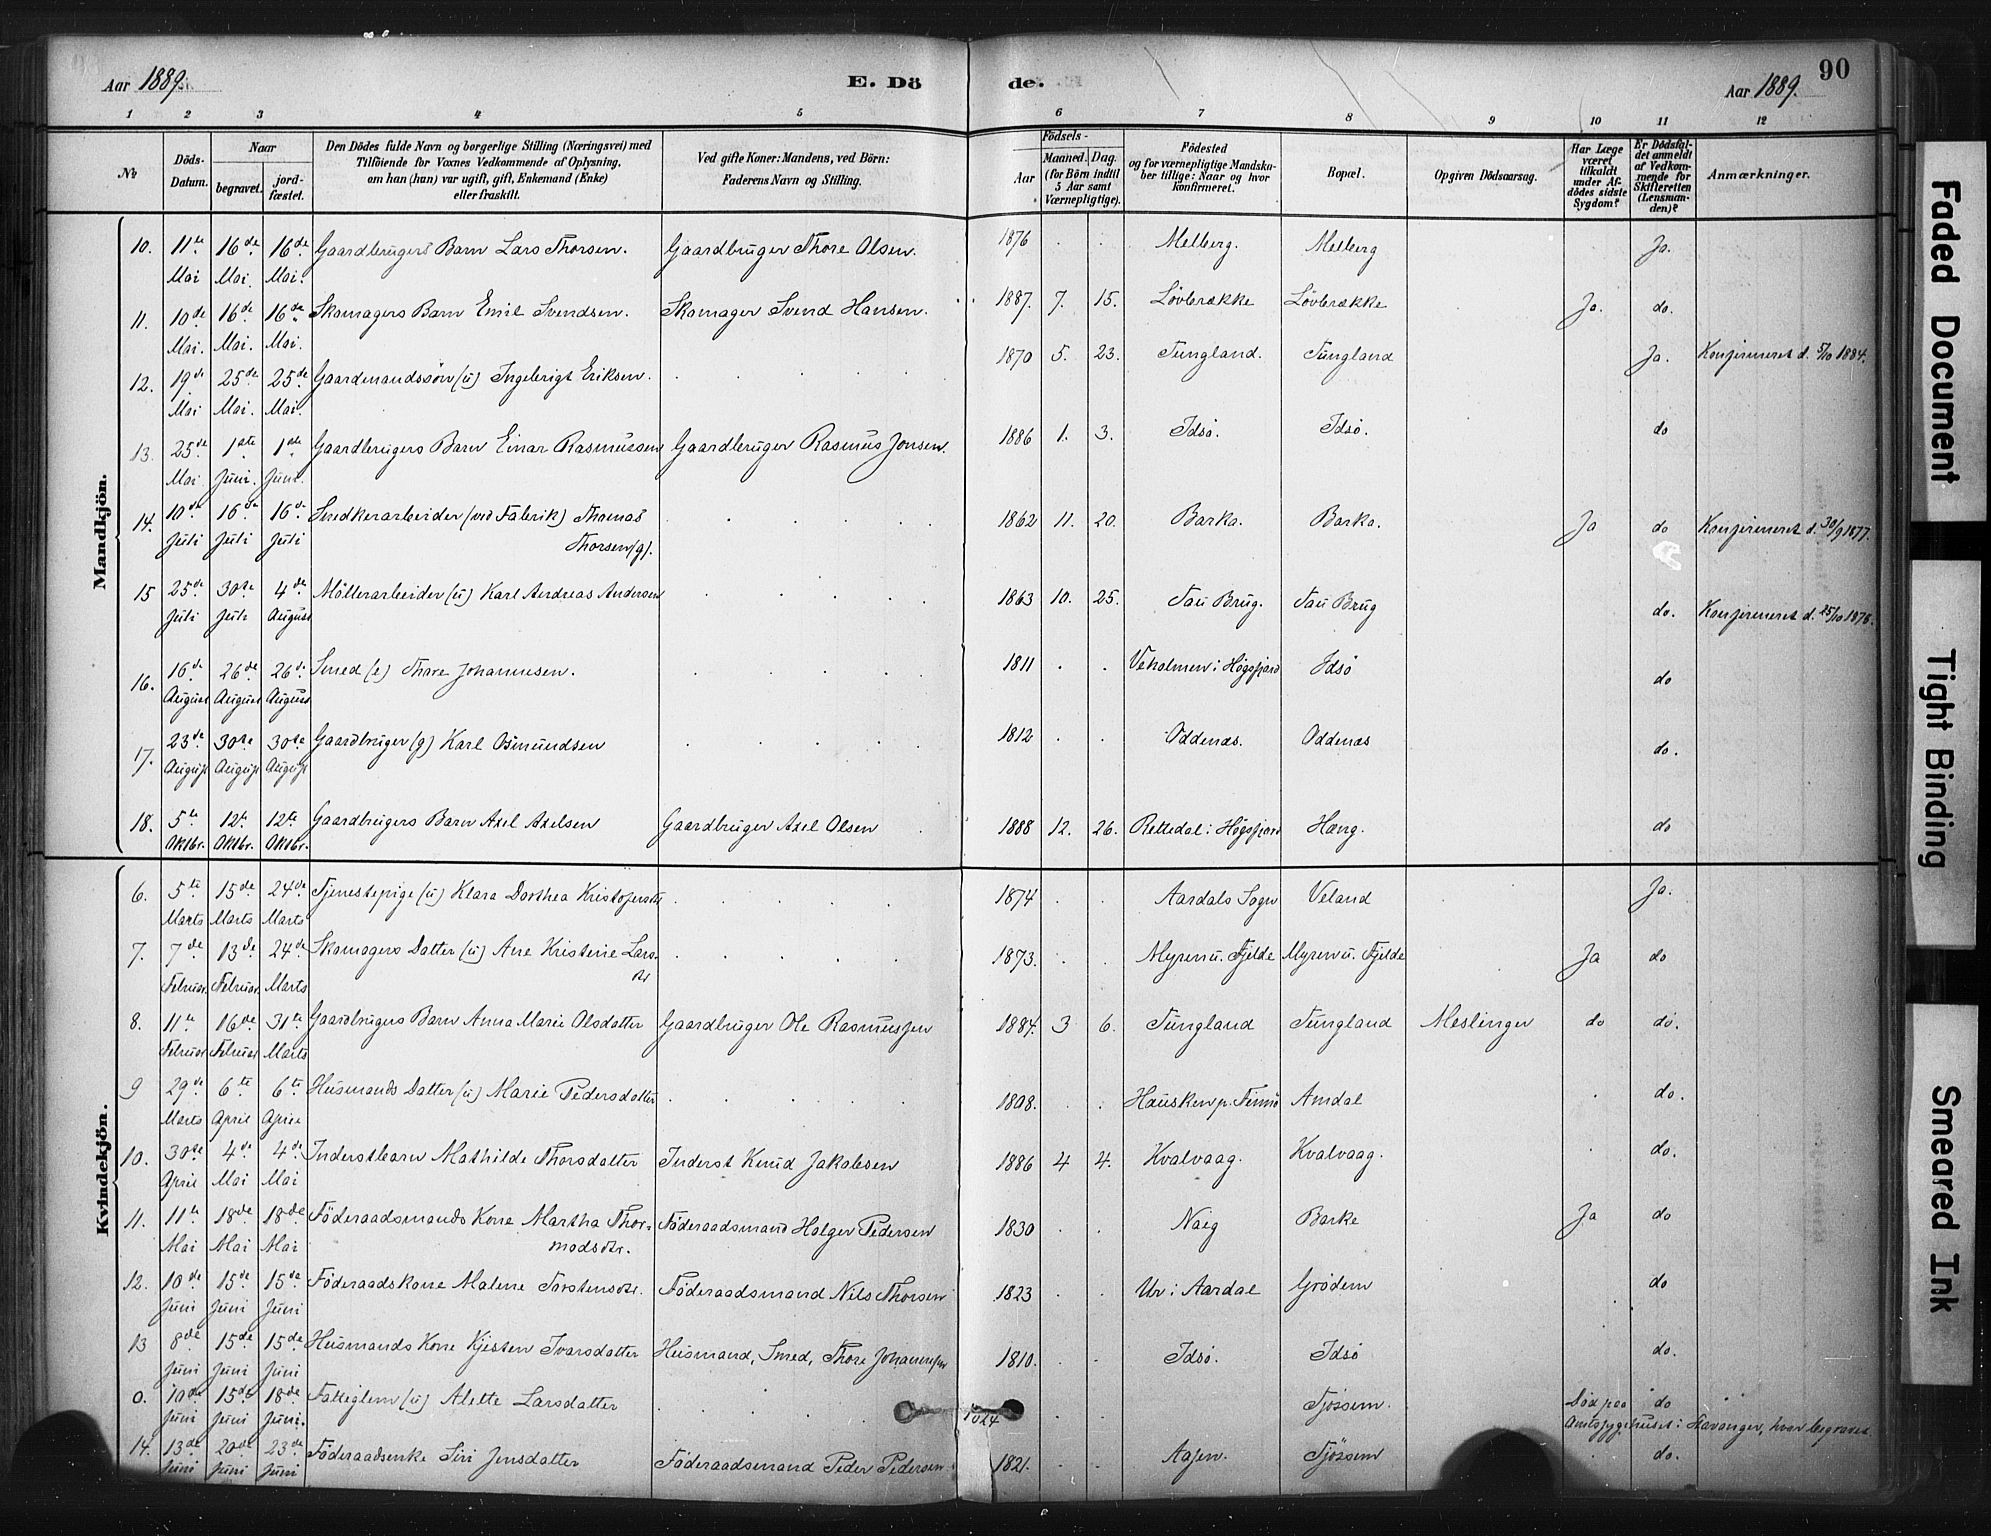 Aar 1889. E. Dö de. Aar 1889. 90
1 2 3 4 5 6 7 8 9 10 11 12
No
Döds-Datum.
Naar
begravet.
jordfæstet.
Den Dödes fulde Navn og borgerlige Stilling (Næringsvei) med
Tilföiende for Voxnes Vedkommende af Oplysning,
om han (hun) var ugift, gift, Enkemand (Enke)
eller fraskilt.
Ved gifte Koner: Mandens, ved Börn:
Faderens Navn og Stilling.
Födsels-
Aar
Maaned. Dag.
(for Börn indtil
5 Aar samt
Værnepligtige).
Födested
og for værnepligtige Mandska-
ber tillige: Naar og hvor
konfirmeret.
Bopæl.
Opgiven Dödsaarsag.
Har Læge
været
tilkaldt
under Af-
dödes sidste
Sygdom?
Er Dödsfal-
det anmeldt
af Vedkom-
mende for
Skifteretten
(Lensman-
den)?
Anmærkninger.
Mandkjön.
10. 11te Mai 16de Mai. 16de Mai. Gaardbrugers Barn Lars Thorsen. Gaardbruger Thore Olsen. 1876 . . Melberg. Melberg Ja.
11. 10de Mai. 16de Mai. 16de Mai. Skomagers Barn Emil Svendsen. Skomager Svend Hansen. 1887. 7. 15. Løvbrække Løvbrække Ja. do.
12. 19de Mai 25de Mai. 25de Mai. Gaardmandssøn (u) Ingebrigt Eriksen. 1870 5. 23. Tungland. Tungland Ja. Konfirmeret d. 5/10 1884.
13. 25de Mai 1ste Juni. 1ste Juni. Gaardbrugers Barn Einar Rasmussen Gaardbruger Rasmus Jonsen. 1886 1. 3. Idsø. Idsø. do
14. 10de Juli 16de Juli 16de Juli Snedkerarbeider (ved Fabrik) Thomas
Thorsen (g). 1862 11. 20. Barka. Barka. Ja do Konfirmeret d. 30/9 1877.
15 25de Juli 30te Juli 4de August Møllerarbeider (u) Karl Andreas Andersen 1863 10. 25. Tau Brug. Tau Brug do. Konfirmeret d.
16. 16de August 26de August 26de August Smed (e) Thore Johannesen. 1811 . . i Høgsfjord Idsø do
17. 23de August 30te August 30te August Gaardbruger (g) Karl Osmundsen 1812 . . Oddenæs. Oddenæs do.
18. 5te Oktbr. 12te Oktbr. 12te Oktbr. Gaardbrugers Barn Axel Axelsen Gaardbruger Axel Olsen 1888 12. 26. Rettedal i Høgsfjord Hæng. do
Kvindekjön.
6. 5te Marts 15de Marts 24de Marts Tjenestepige (u) Klara Dorthea 1874 . . Aardals Sogn Veland Ja.
7. 7de Februar. 13de Februar. 24de Marts Skomagers Datter (u) Ane Kristine Lars-
dtr 1873. . . Myren u. Fjelde Myren u. Fjelde Ja do
8. 11te Februar 16de Februar 31te Marts Gaardbrugers Barn Anna Marie Olsdatter Gaardbruger Ole Rasmussen 1884. 3 6. Tungland Tungland Meslinger do do.
9 29de Marts 6te April 6te April Husmands Datter (u) Marie Pedersdatter 1808. . . Hausken p. Amdal do.
10. 30te April 4de Mai 4de Mai Inderstbarn Mathilde Thorsdatter Inderst Knud Jakobsen 1886 4 4. Kvalvaag. Kvalvaag. do.
11. 11te Mai 18de Mai 18de Mai Føderaadsmands Kone Martha Thor-
modsdtr. Føderaadsmand Holger Pedersen 1830 . . Naeg Barke Ja do
12. 10de Juni 15de Juni 15de Juni Føderaadskone Malene Torstensdtr. Føderaadsmand Nils Thorsen 1823 . . Ur i Aardal Grødem do
13 8de Juni 15de Juni 15de Juni Husmands Kone Kjersten Ivarsdatter Husmand, Smed, Thore Johannesen 1810. . . Idsø. Idsø do.
0. 10de Juni 15de Juni 18de Juni. Fattiglem (u) Alette Larsdatter 1824 . . Tjøssem. Død paa do
Amtssygehuset i Stavanger, hvor begravet
14. 13de Juni 20de Juni 23de Juni Føderaadsenke Siri Jensdatter Føderaadsmand Peder Pedersen 1821. . . Tjøssem do.
Faded Document
Tight Binding
Smeared Ink